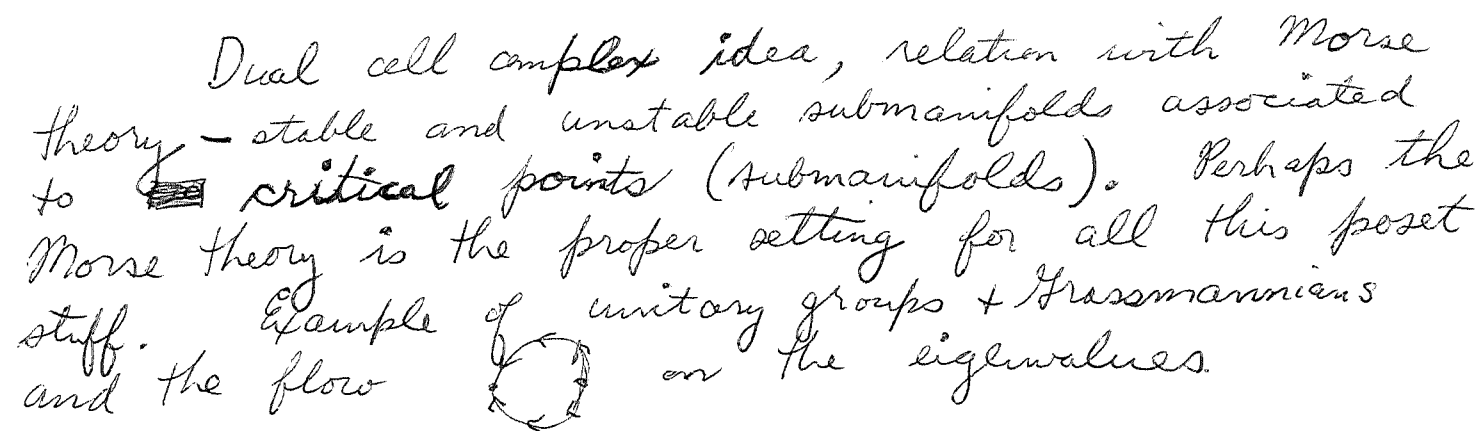 Dual cell complex idea, relation with Morse
theory - stable and unstable submanifolds associated
to critical points (submanifolds). Perhaps the
Morse theory is the proper setting for all this poset
stuff. Example of unitary groups + Grassmannians
and the flow on the eigenvalues.